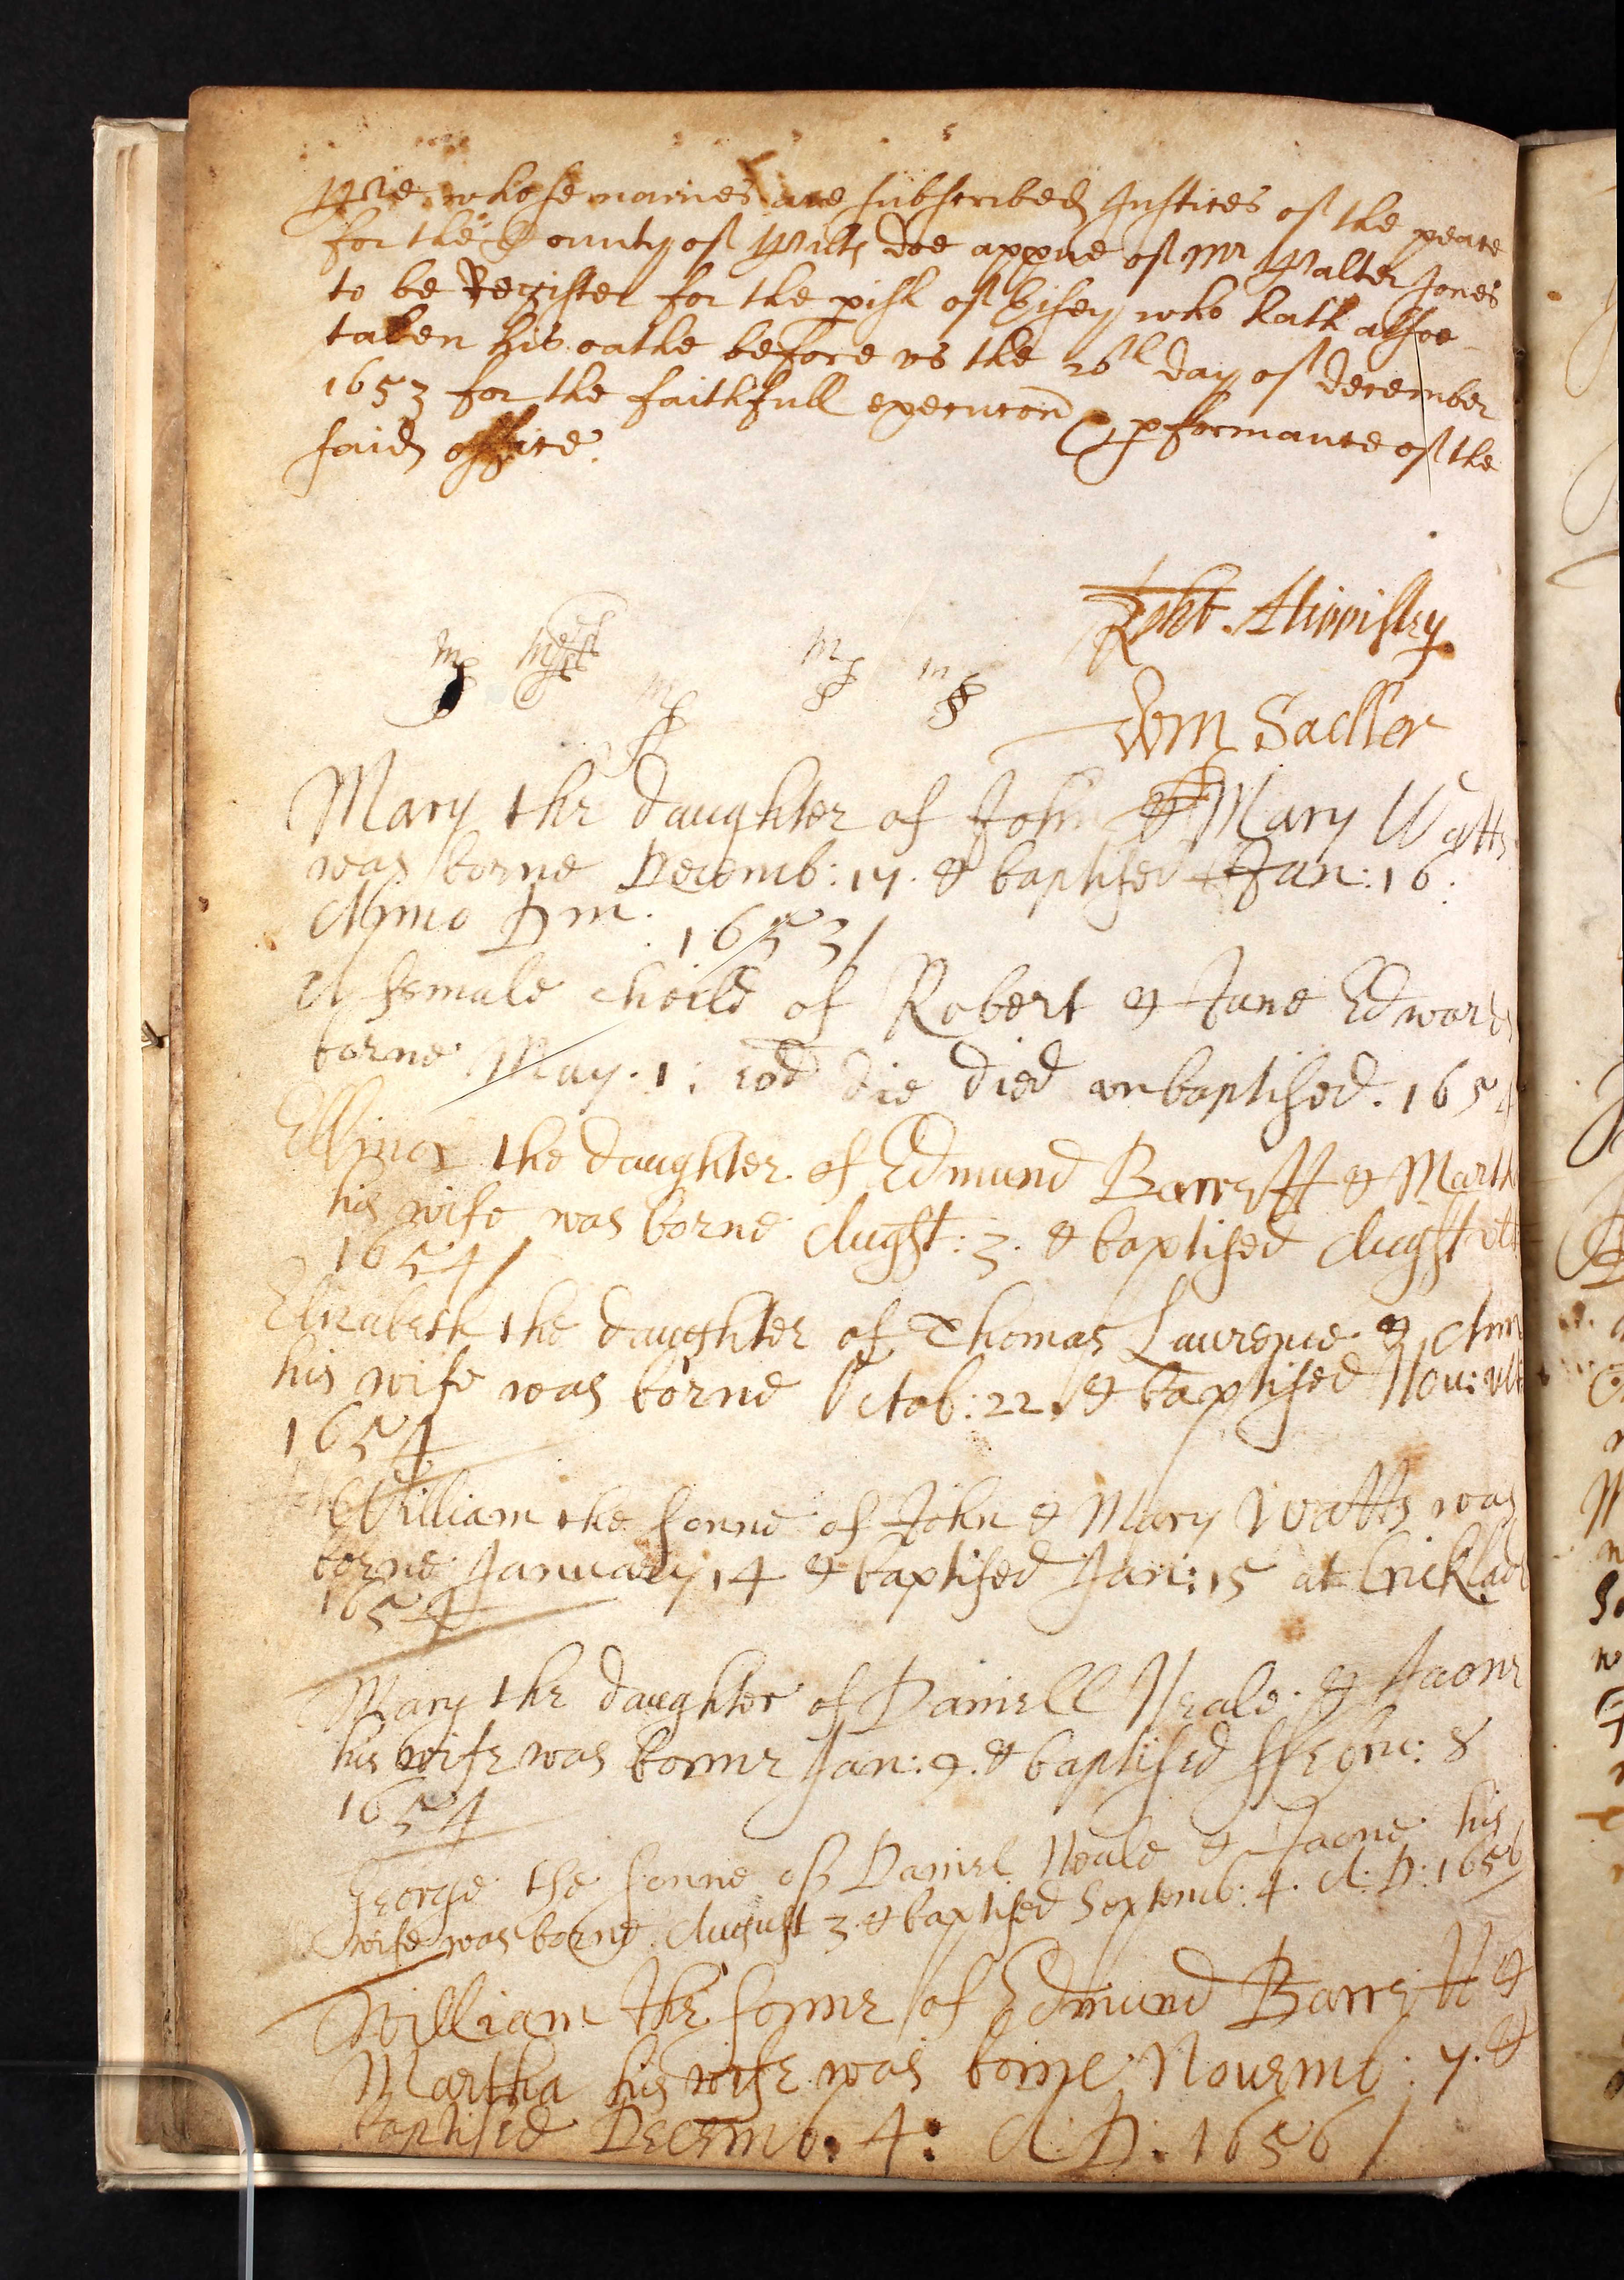 Wee whose names are subscribed Justices of the peace
for the County of Wilts doe appve of Mr Walter Jones
to be Register for the pish of Eisey who hath alsoe
taken his oathe before us the 26th day of December
1653 for the faithfull execucon & pformance of the
said office.
Robt. Hippisley
Wm Sadler
Mary the daughter of John & Mary Watts
was borne Decemb: 17. & baptised Jan: 16.
Anno Dm. 1653/
A female cheild of Robert & Jane Edwards
borne May. 1: eod die died vnbaptised. 1654
Ellinor the daughter of Edmund Barrett & Martha
his wife was borne Augst: 3. & baptised Augst ult
1654/
Elizabeth the daughter of Thomas Laurence & Ann
his wife was borne Octob: 22. & baptised Nou: ult
1654
William the sonne of John & Mary Watts was
borne January 14 & baptised Jan: 15 at Cricklade
1654
Mary the daughter of Daniell Neale & Jaone
his wife was borne Jan: 9. & baptised ffebru: 8
1654
George the sonne of Daniel Neale & Jaone his
wife was borne August 3. & baptised Septemb: 4. A: D: 1656
William the sonne of Edmund Barrett &
Martha his wife was borne Nouemb: 7. &
baptised Decemb: 4: A: D: 1656/